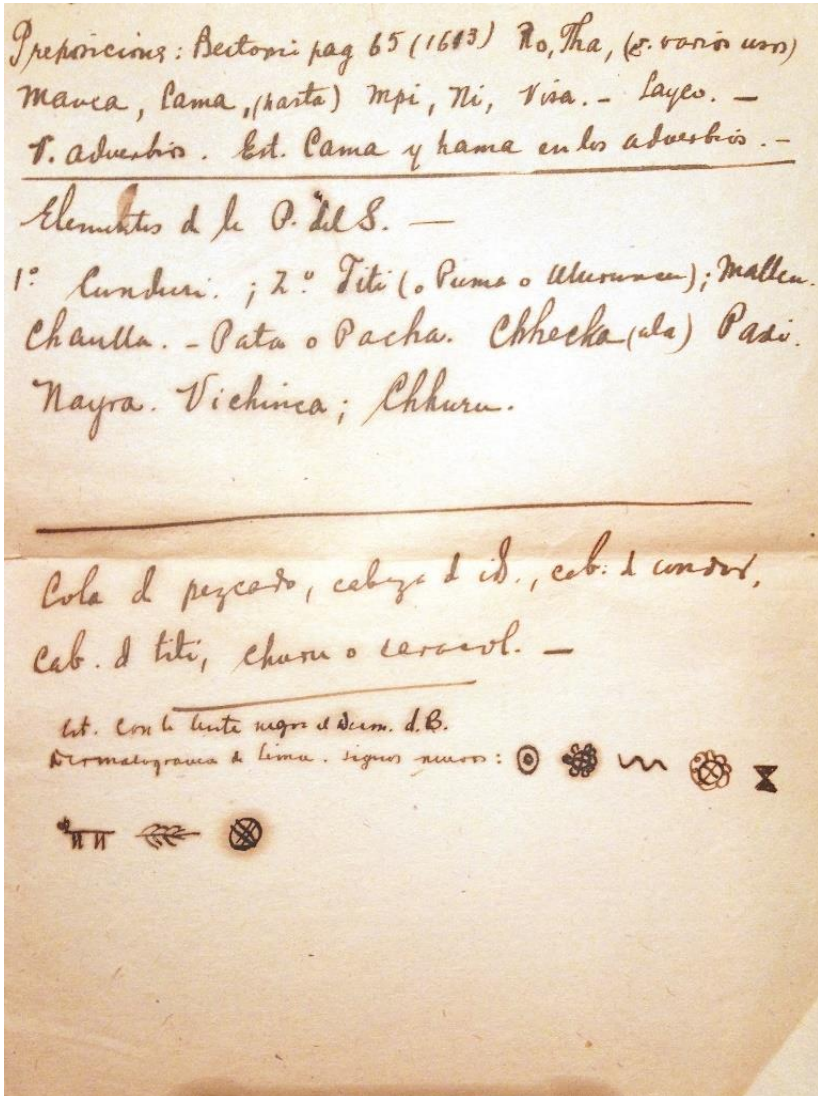 Preposiciones: Bertoni pag 65 (1613) Ro, Tha, (v. varios usos)
Manca, Cama, (hasta) mpi, Ni, Visa. - Layco. -
V. adverbios. Est. Cama y hama en los adverbios. -
Elementos d la P. del S. —
1º Cunduri. ; 2.º Titi (o Puma o Uturuncu); Mallcu.
Chaulla. - Pata o Pacha. Chhecka (ala) Paxi.
Nayra. Vichinca; Chhuru.
Cola d pezcado, cabeza d id., cab. d condor,
Cab. d titi, churu o caracol. —
Est. con la lente negra el Derm. d. B.
de Lima. signos nuevos: